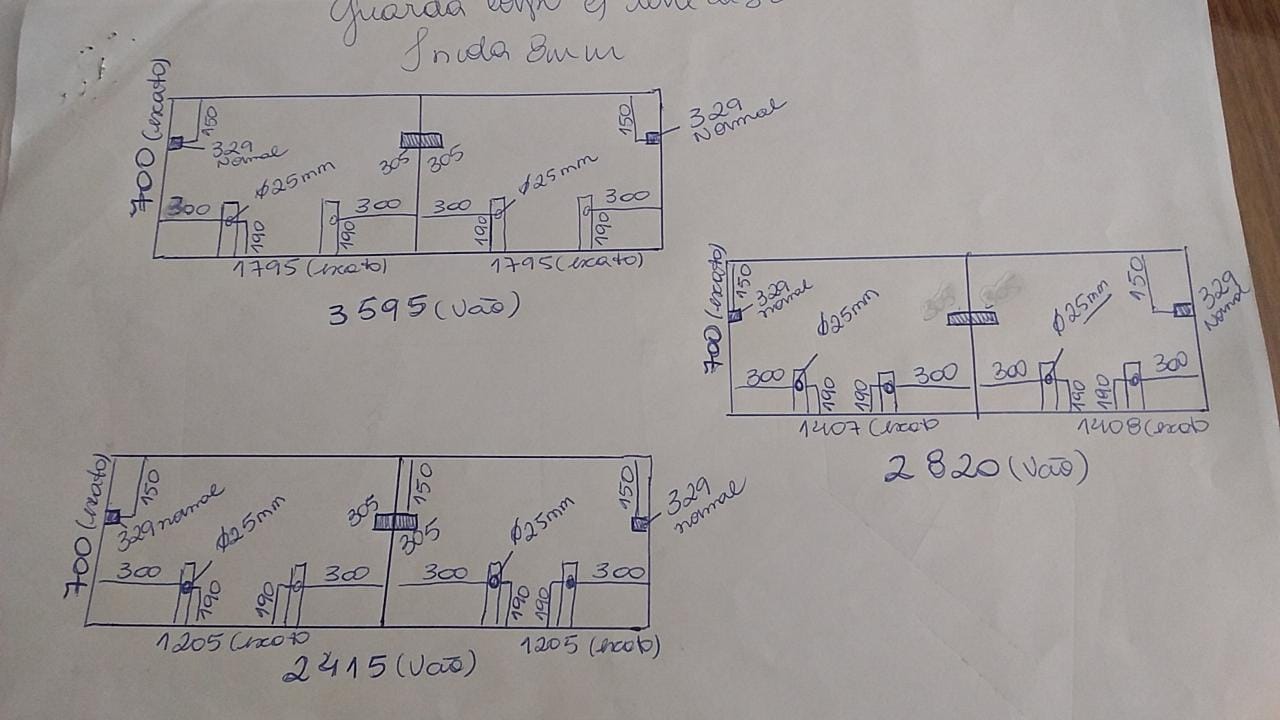 Guarda
Incda 8mm
700 (exato)
150
329
Normal
305
305
150
329
Normal
300
Ø25mm
190
190
300
300
Ø25mm
190
190
300
1795 (exato)
1795 (exato)
3595 (Vão)
700 (exato)
150
329
normal
Ø25mm
305
305
Ø25mm
150
329
300
190
190
300
300
190
190
300
1407 (exato
1408 (exato
2820 (Vão)
700 (exato)
150
329 normal
Ø25mm
305
150
305
Ø25mm
150
329
normal
300
190
190
300
300
190
190
300
1205 (exato
1205 (exato)
2415 (Vão)